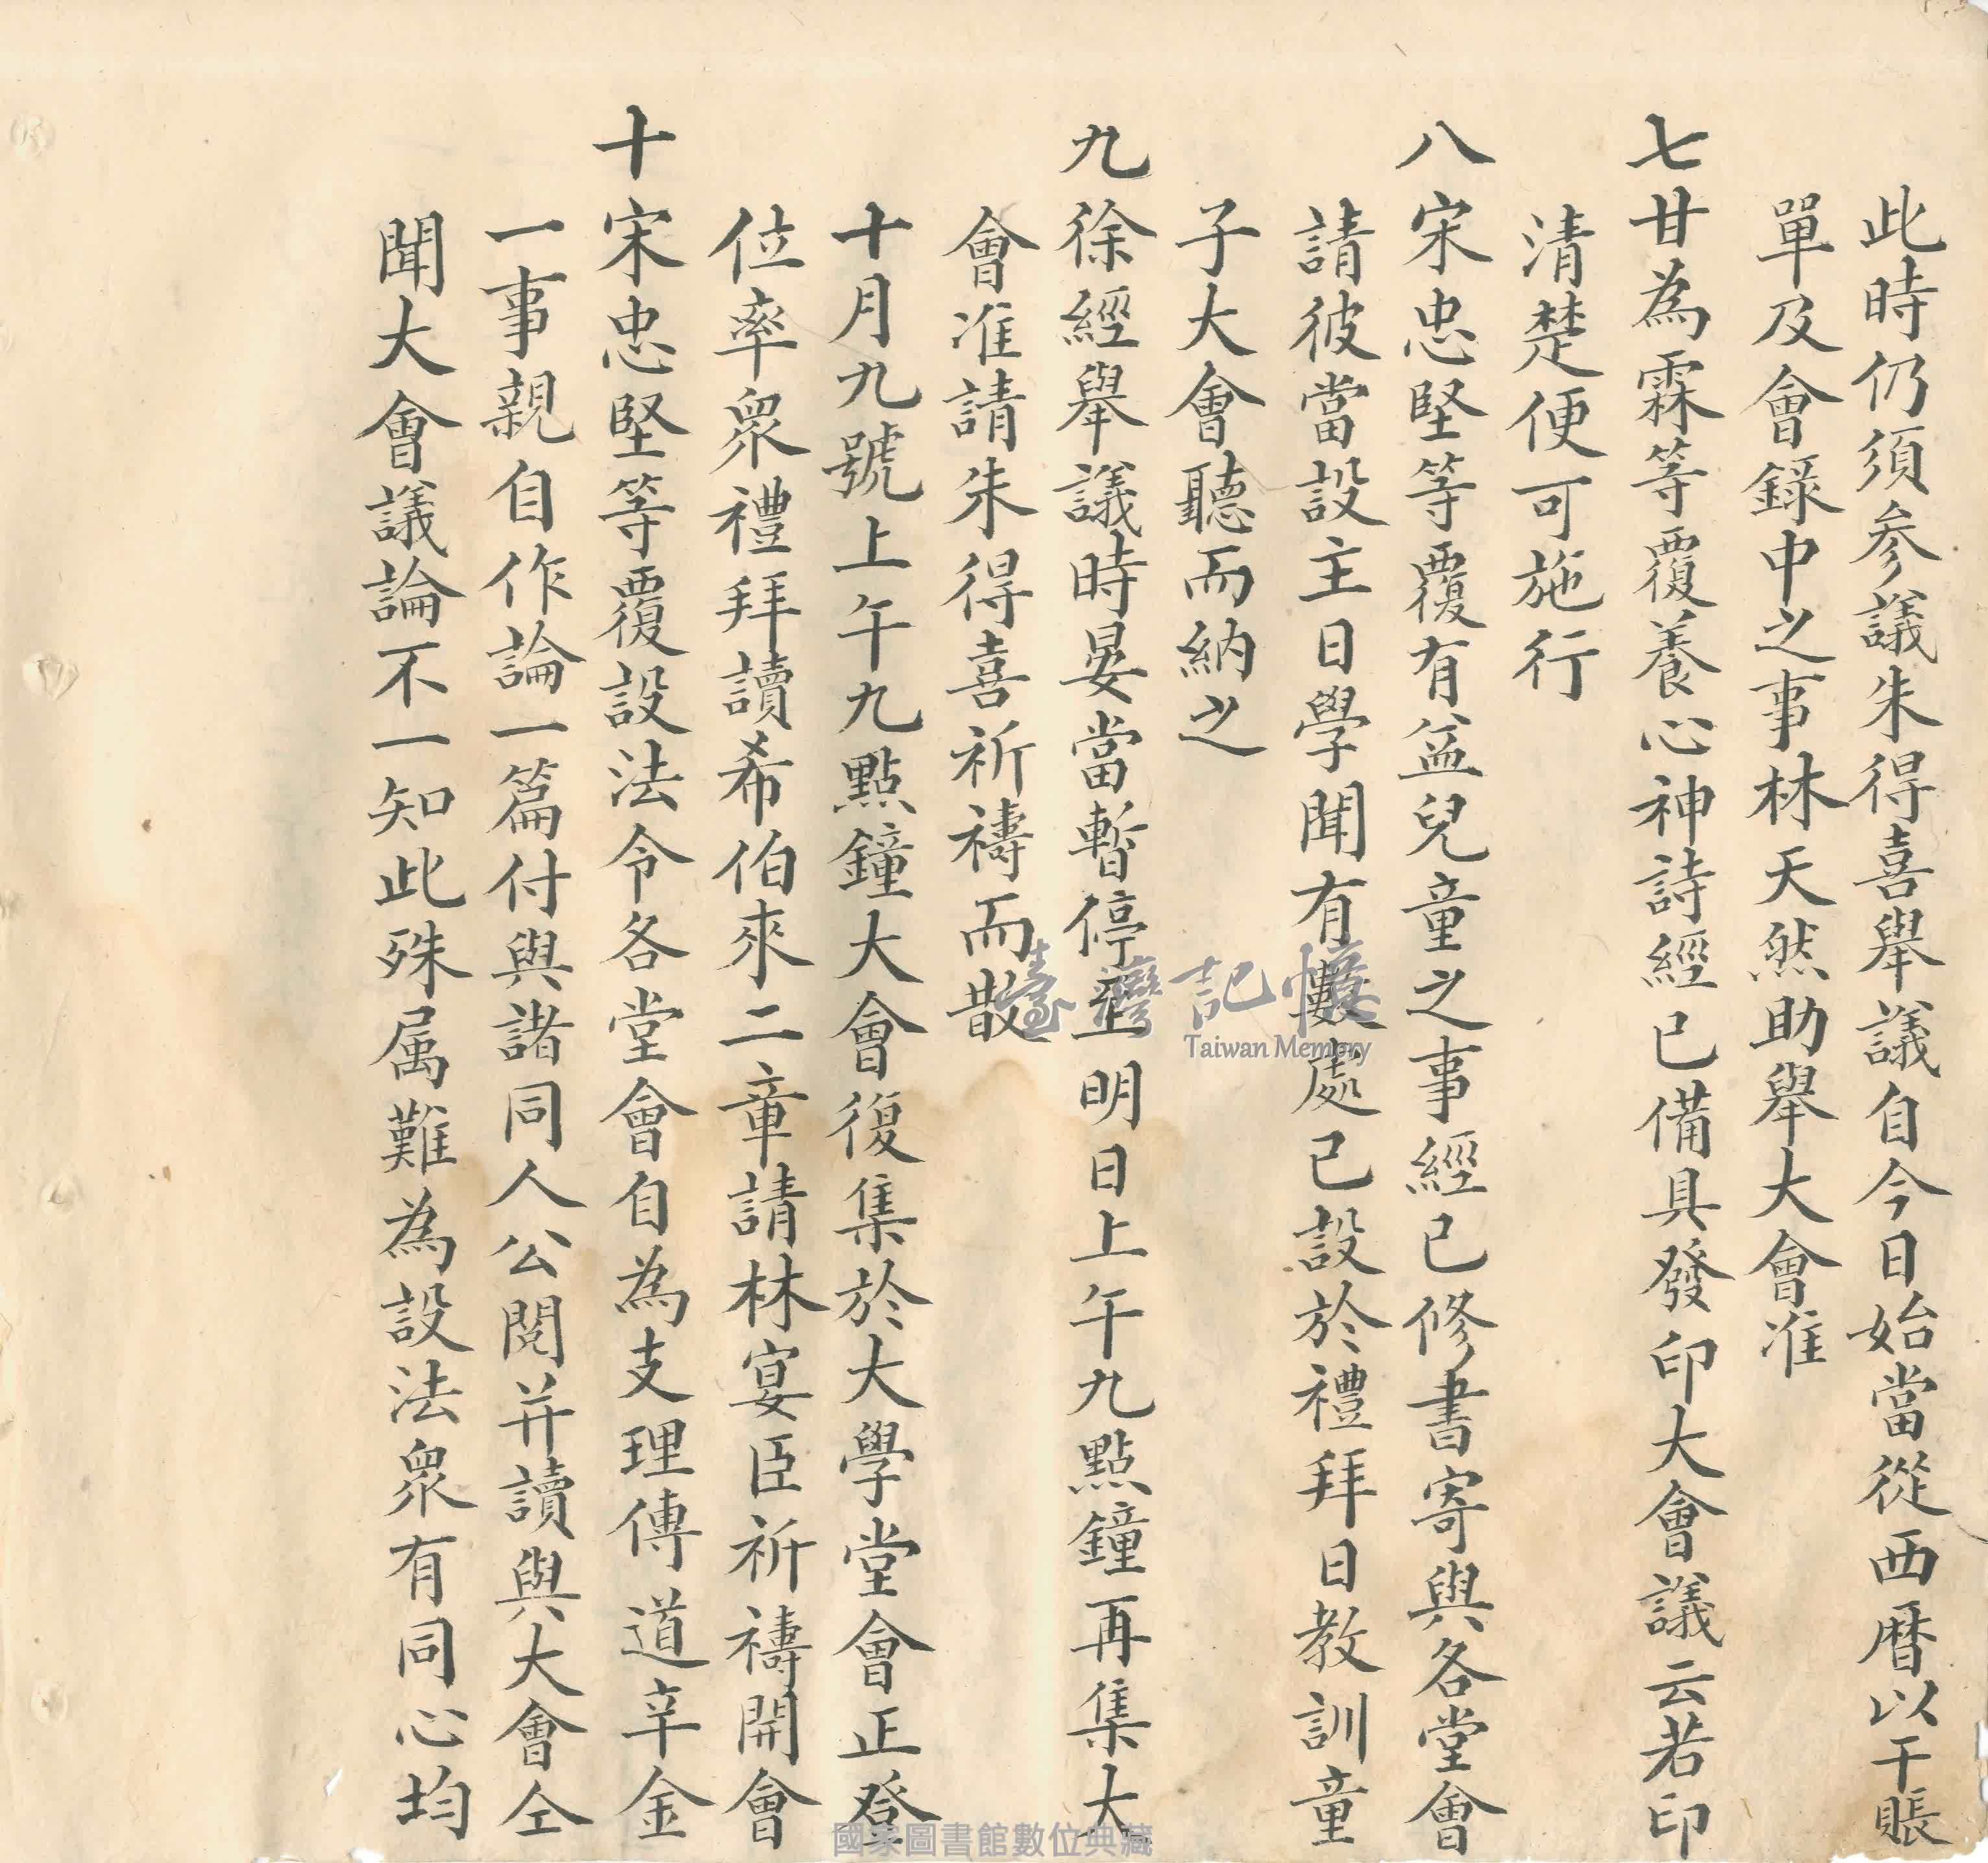 此時仍須参議朱得喜舉議自今日始當從西曆以干賬
單及會錄中之事林天然助舉大會准
七甘為霖等覆養心神詩經已備具發印大會議云若印
清楚便可施行
八宋忠堅等覆有益兒童之事經已修書寄與各堂會
請彼當設主日學聞有數處已設於禮拜日教訓童
子大會聽而納之
九徐經舉議時晏當暫停止明日上午九點鐘再集大
會准請朱得喜祈禱而散
十月九號上午九點鐘大會復集於大學堂會正登
位率眾禮拜讀希伯來二章請林宴臣祈禱開會
十宋忠堅等覆設法令各堂會自為支理傳道辛金
一事親自作論一篇付與諸同人公閱并讀與大會仝
聞大會議論不一知此殊属難為設法眾有同心均
臺灣記憶
Taiwan Memory
國家圖書館數位典藏